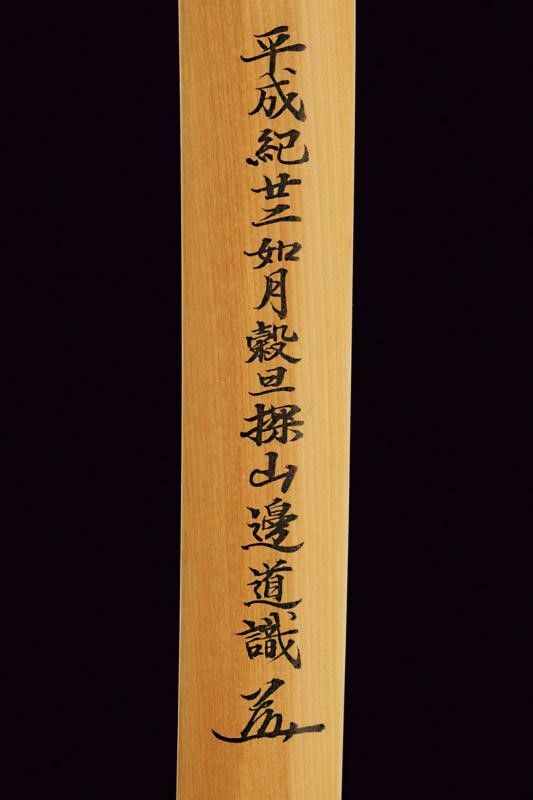 平成紀廿二如月穀旦探山邊道識